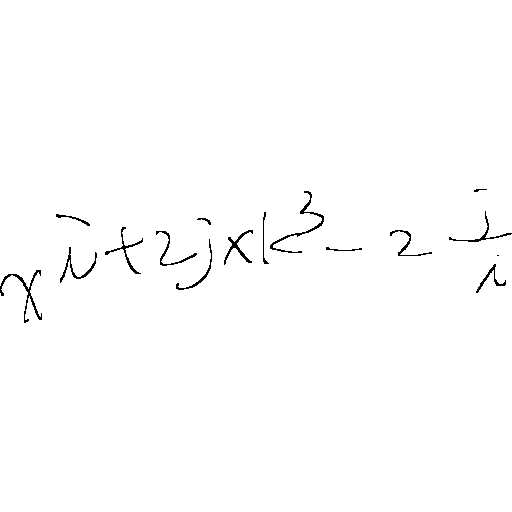 x^i + 2j × k^3 - 2 j/i